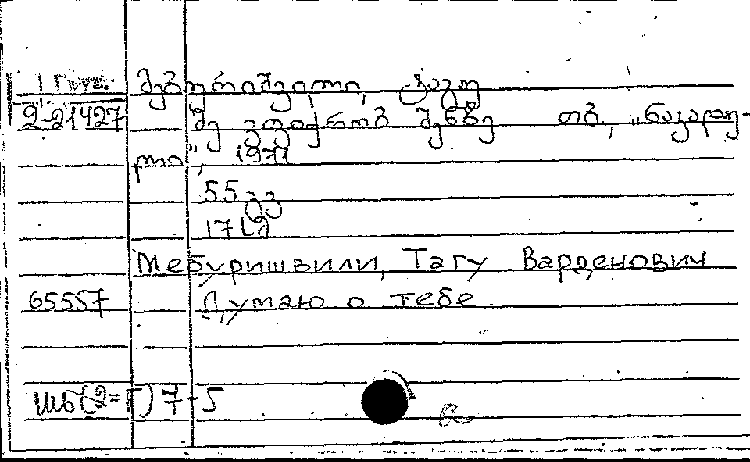 1 Груз. მებურიშვილი, ტაგუ
2-21427 მე ვფიქრობ შენზე თბ., „ნაკადუ-
ლი", 1971
55 გვ
17 სმ
Мебуришвили, Тагу Варденович
65557 Думаю о тебе
Шб(2=Г)7-5